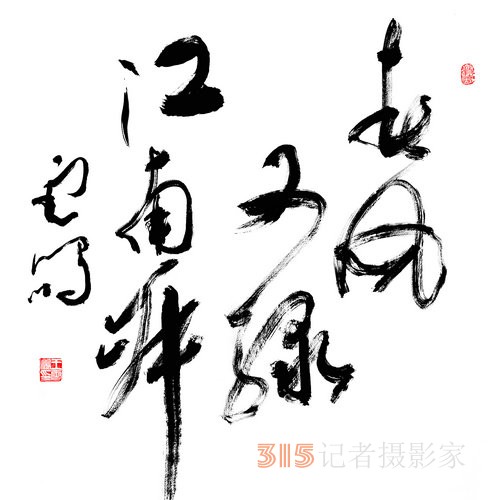 春风
又绿
江南岸
315记者摄影家